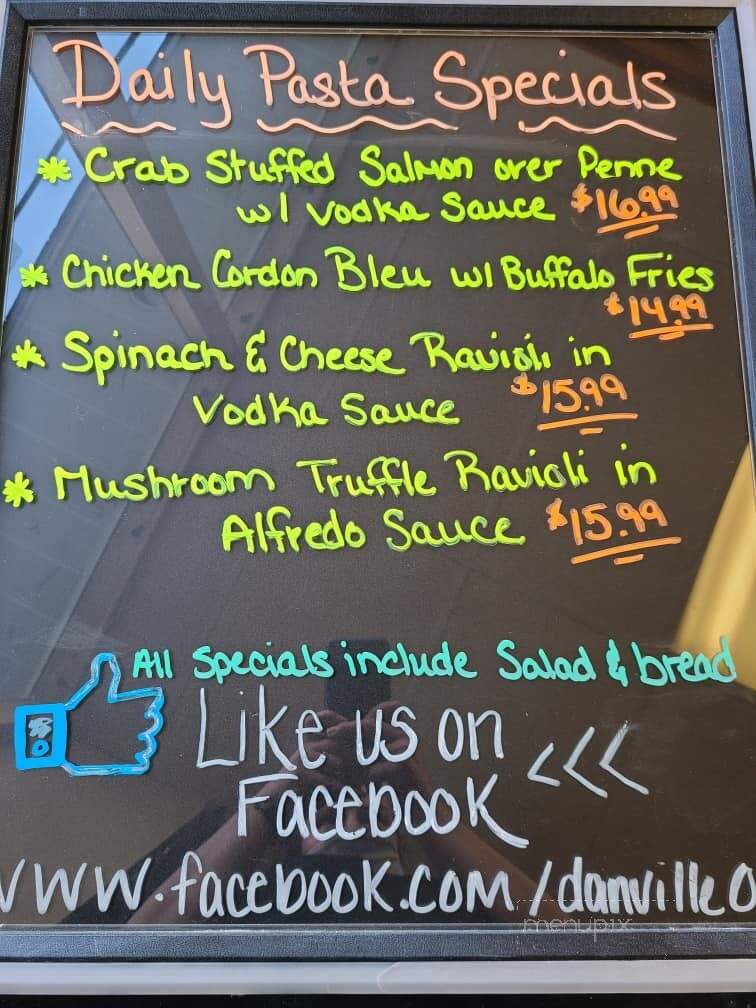 Daily Pasta Specials
* Crab Stuffed Salmon over Penne
w/ Vodka Sauce $16.99
* Chicken Cordon Bleu w/ Buffalo Fries
$14.99
* Spinach & Cheese Ravioli in
Vodka Sauce $15.99
* Mushroom Truffle Ravioli in
Alfredo Sauce $15.99
All Specials include Salad & bread
Like us on <<<
Facebook
www.facebook.com/danvilleo
menupix